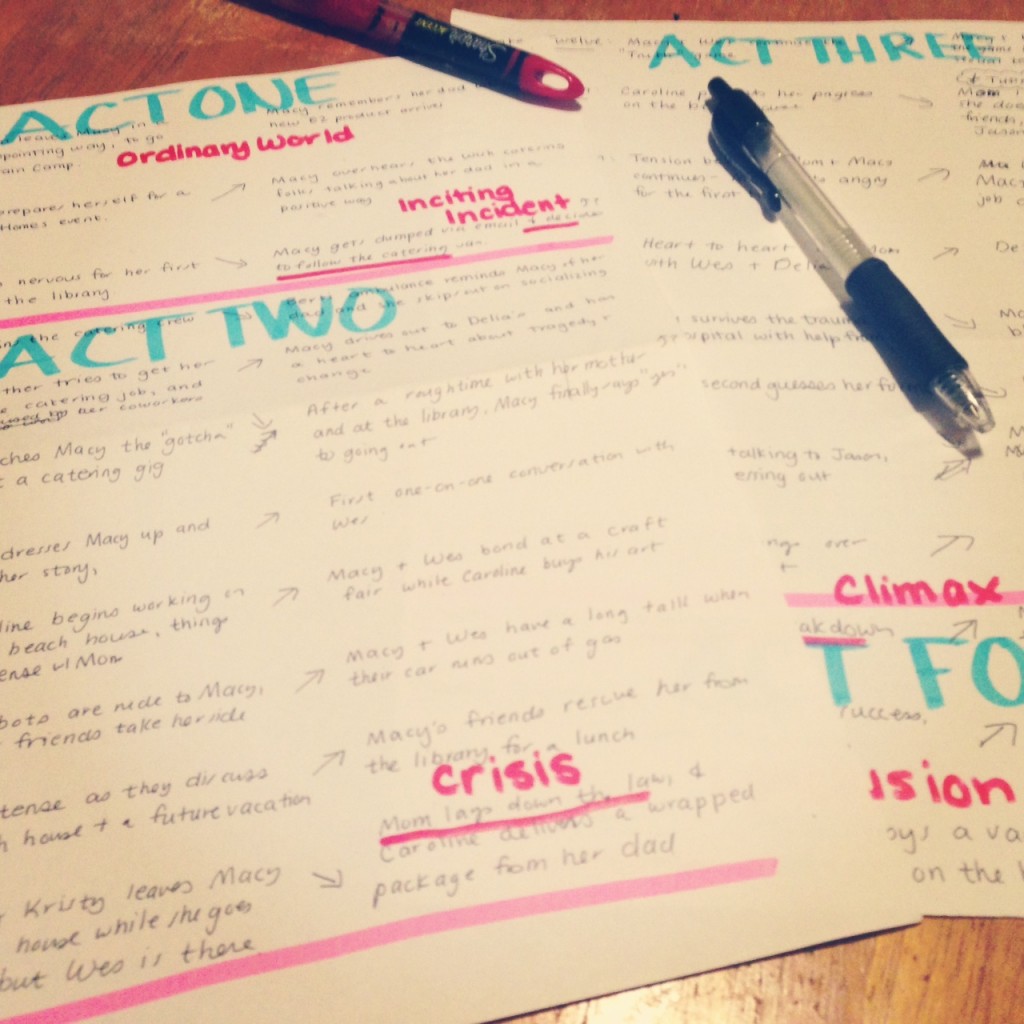 Sharpie ACCENT
ACT ONE
Macy remembers her dad
new EZ product arrive
leaves Macy in
ppointing way, to go
ain Camp.
Ordinary World
Macy overhears the Wish catering
folks talking about her dad in a
positive way
prepares herself for a
Homes event.
Inciting
Incident
Macy gets dumped via email + decides
to follow the catering van.
nervous for her first
the library
ACT TWO
the catering crew
ambulance reminds Macy of her
dad and she skips out on socializing
Macy drives out to Delia's and has
a heart to heart about tragedy +
change
ther tries to get her
catering job, and
her coworkers
After a rough time with her mother
and at the library, Macy finally says "yes"
to going out
ches Macy the "gotcha"
t a catering gig
First one-on-one conversation with
Wes
dresses Macy up and
her story,
Macy + Wes bond at a craft
fair while Caroline buys his art
line begins working on
beach house, things
ense w/ Mom
Macy + Wes have a long talk when
their car runs out of gas
bots are rude to Macy,
friends take her side
Macy's friends rescue her from
the library for a lunch
tense as they discuss
h house + a future vacation
Crisis
Mom lays down the law, &
Caroline delivers a wrapped
package from her dad
Kristy leaves Macy
house while she goes
but Wes is there
twelve.
ACT THREE
"Truth" game
Caroline
her progress
on the
Mom
she does
friend,
Jason
Tension
Mom + Macy
continues-
angry
for the first
Macy
job
Heart to heart
with Wes + Delia
De
survives the trauma
spital with help from
second guesses her fu
talking to Jason,
out
over
Climax
akdown
T FO
success,
sion
ys a va
on the